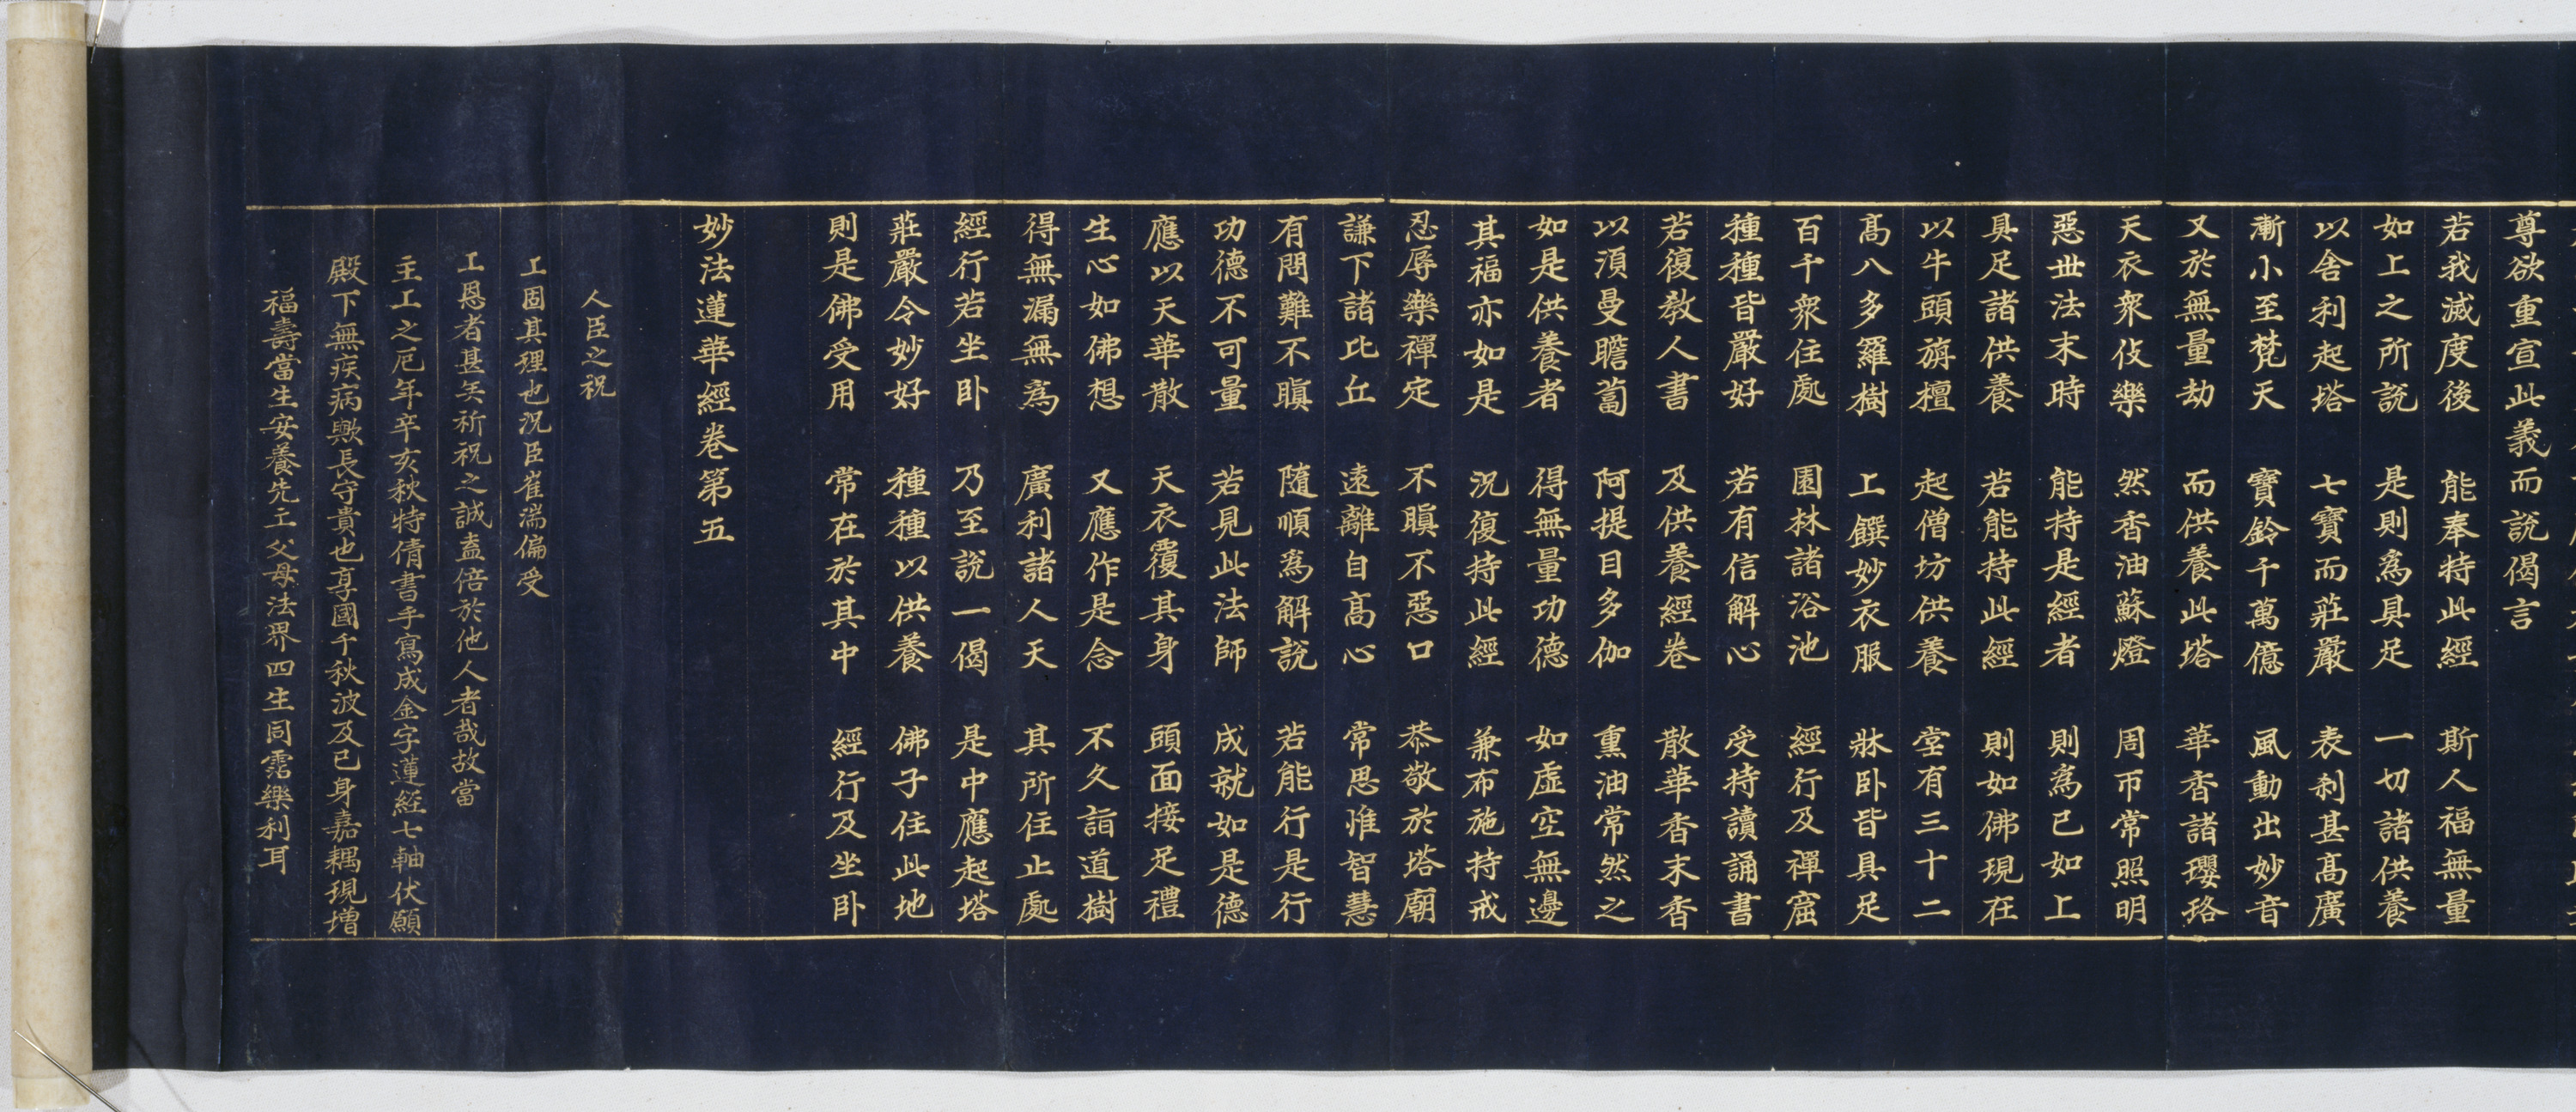 尊欲重宣此義而說偈言
若我滅度後　能奉持此經　斯人福無量
如上之所說　是則爲具足　一切諸供養
以舍利起塔　七寶而莊嚴　表刹甚高廣
漸小至梵天　寶鈴千萬億　風動出妙音
又於無量劫　而供養此塔　華香諸瓔珞
天衣衆伎樂　然香油蘇燈　周帀常照明
惡丗法末時　能持是經者　則爲已如上
具足諸供養　若能持此經　則如佛現在
以牛頭旃檀　起僧坊供養　堂有三十二
髙八多羅樹　上饌妙衣服　牀卧皆具足
百千衆住處　園林諸浴池　經行及禪窟
種種皆嚴好　若有信解心　受持讀誦書
若復教人書　及供養經卷　散華香末香
以湏曼瞻蔔　阿提目多伽　熏油常然之
如是供養者　得無量功德　如虛空無邊
其福亦如是　況復持此經　兼布施持戒
忍辱樂禪定　不瞋不惡口　恭敬於塔廟
謙下諸比丘　遠離自髙心　常思惟智慧
有問難不瞋　隨順爲解說　若能行是行
功德不可量　若見此法師　成就如是德
應以天華散　天衣覆其身　頭面接足禮
生心如佛想　又應作是念　不久詣道樹
得無漏無爲　廣利諸人天　其所住止處
經行若坐卧　乃至說一偈　是中應起塔
莊嚴令妙好　種種以供養　佛子住此地
則是佛受用　常在於其中　經行及坐卧
妙法蓮華經卷第五
人臣之祝
上固其理也況臣崔湍偏受
上恩者甚矣祈祝之誠盍倍於他人者哉故當
主上之厄年辛亥秋特倩書手寫成金字蓮経七軸伏願
殿下無疾病歟長守貴也享國千秋波及已身嘉耦現増
福壽當生安養先亡父母法界四生同霑樂利耳